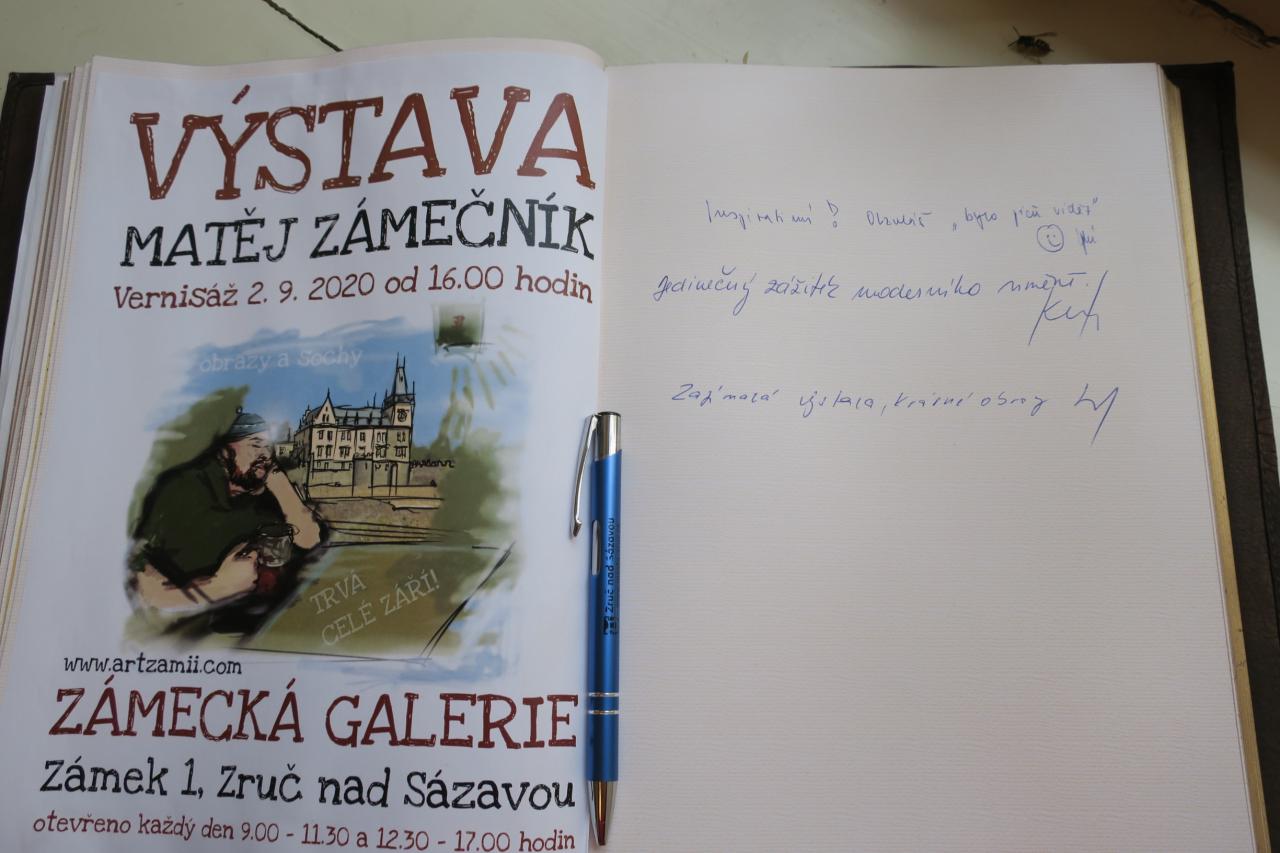 VÝSTAVA
MATĚJ ZÁMEČNÍK
Vernisáž 2. 9. 2020 od 16.00 hodin
obrazy a sochy
TRVÁ
CELÉ ZÁŘÍ!
www.artzamii.com
ZÁMECKÁ GALERIE
Zámek 1, Zruč nad Sázavou
otevřeno každý den 9.00 - 11.30 a 12.30 - 17.00 hodin
Zruč nad Sázavou
Inspirativní! "bylo vidět"
Jedinečný zážitek moderního umění.
Zajímavá výstava, krásné obrazy